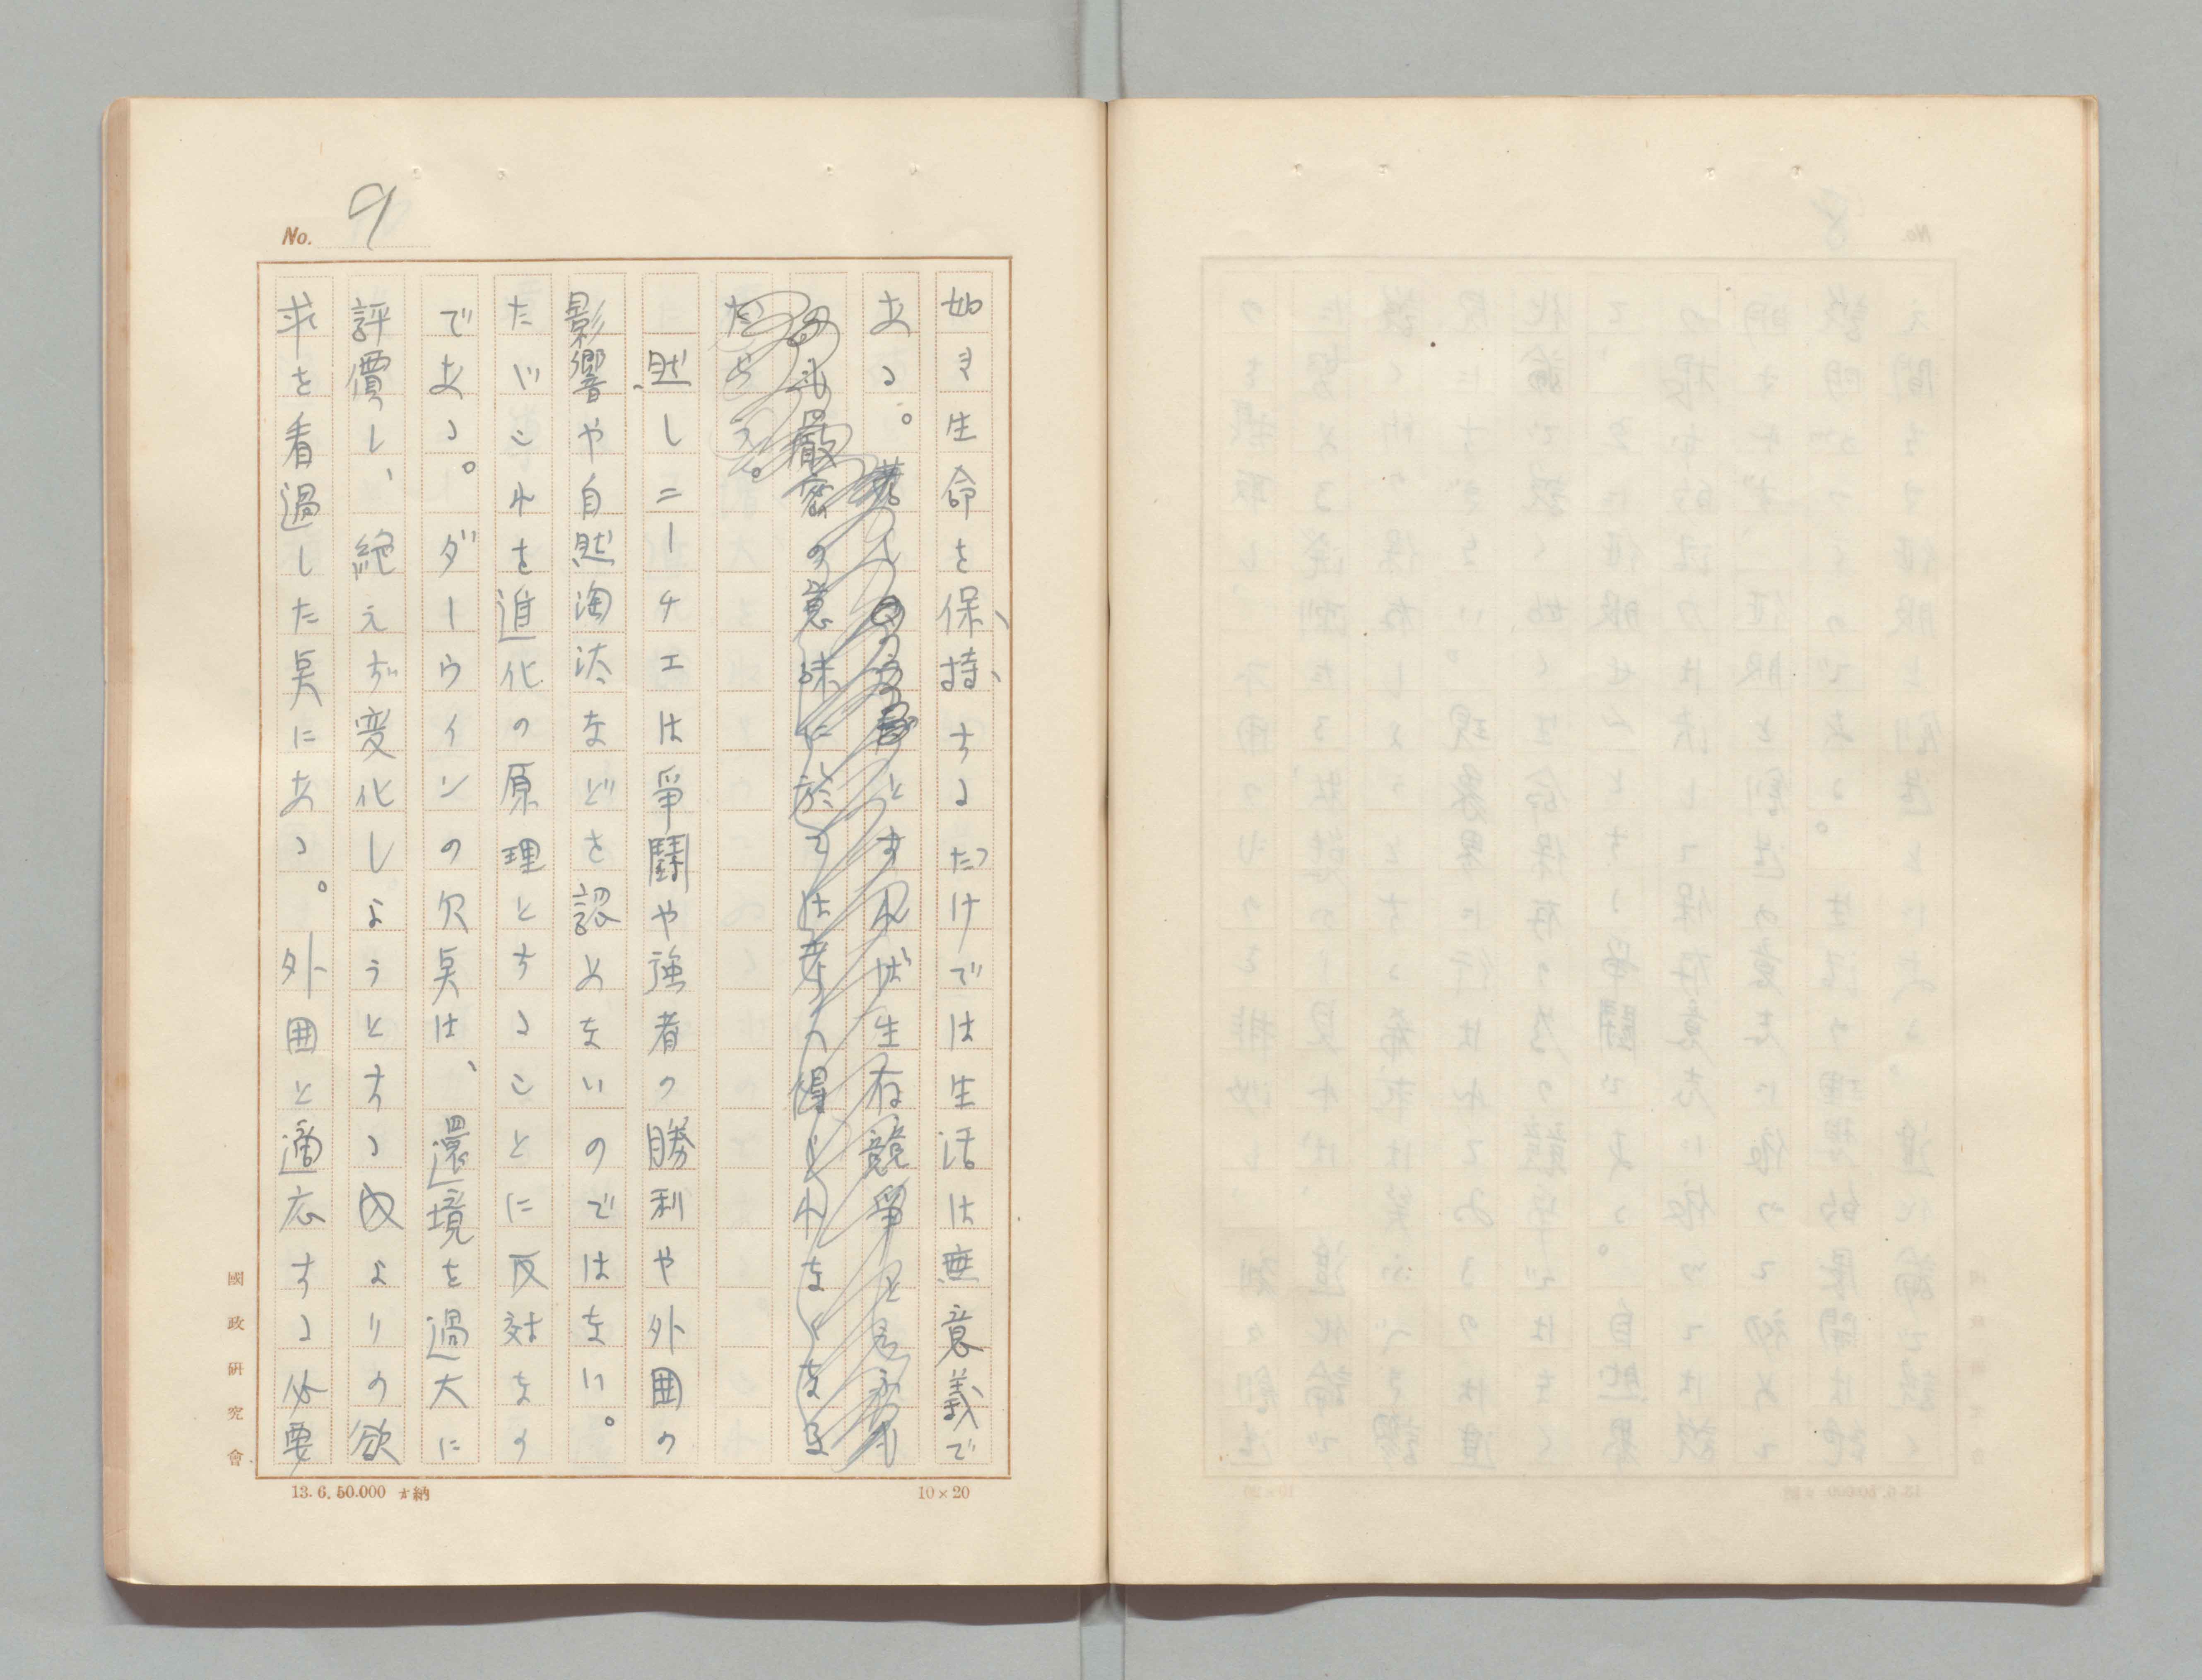 No. 9
如き生命を保持するだけでは生活は無意義で
ある。若しとすれば生存競争と
も厳密の意味に於ては考へ得られなくなる
だらう。
然しニーチエは爭鬪や強者の勝利や外囲の
影響や自然淘汰などを認めないのではない。
たゞこれを進化の原理とすることに反対なの
である。ダーウインの欠点は、還境を過大に
評價し、絶えず変化しようとする内よりの欲
求を看過した点にある。外囲と適応する必要
國政研究會
13.6.50.000 納
10×20